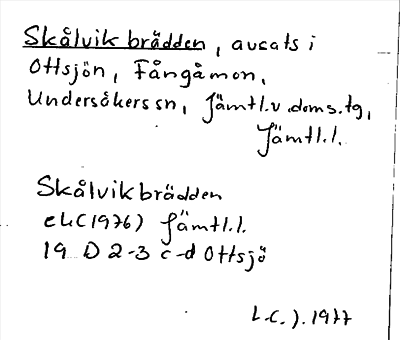 Skålvikbrädden, avsats i
Ottsjön, Fångåmon,
Undersåkers sn, Jämtl.v.doms.tg,
Jämtl.l.
Skålvikbrädden
ek (1976) Jämtl.l.
19 D 2-3 c-d Ottsjö
L.C.J. 1977